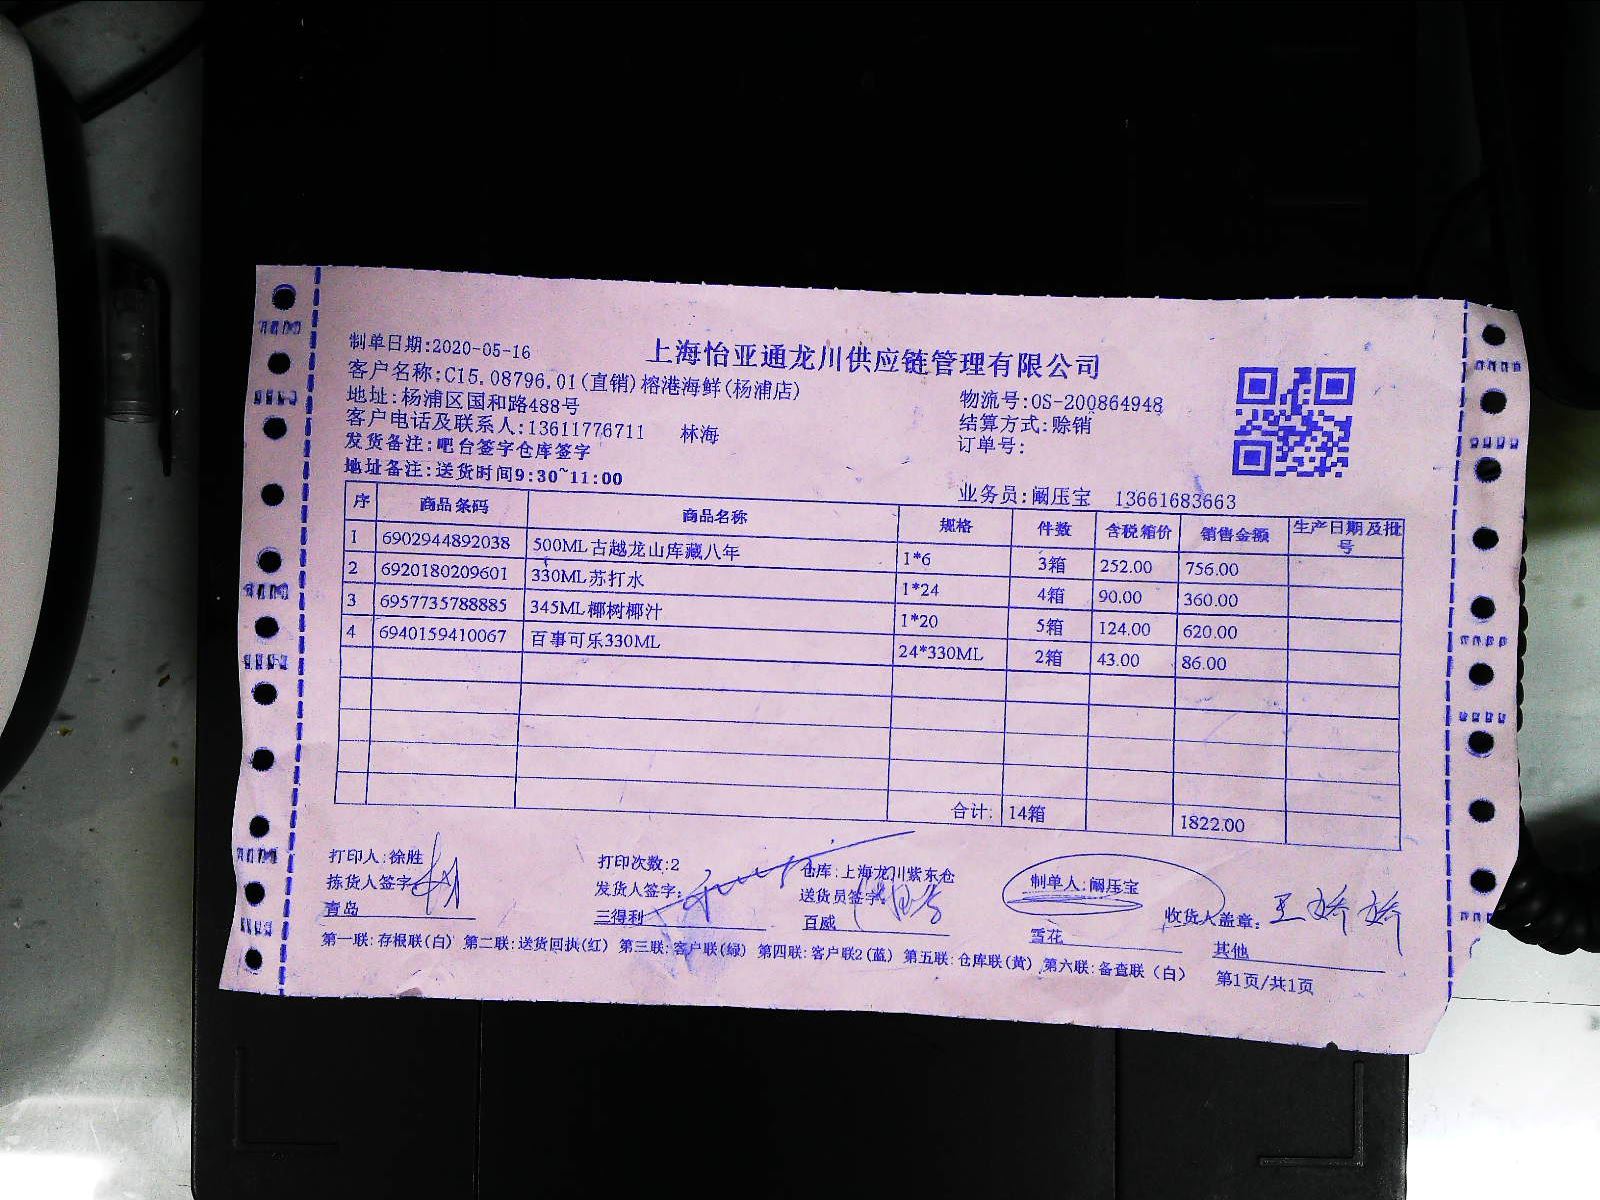 上海怡亚通龙川供应链管理有限公司
制单日期:2020-05-16
客户名称:C15.08796.01(直销)榕港海鲜(杨浦店)
地址:杨浦区国和路488号
物流号:OS-200864948
客户电话及联系人:13611776711 林海
结算方式:赊销
发货备注:吧台签字仓库签字
订单号:
地址备注:送货时间9:30~11:00
业务员:阚压宝 13661683663
序 商品条码 商品名称 规格 件数 含税箱价 销售金额 生产日期及批号
1 6902944892038 500ML古越龙山库藏八年 1*6 3箱 252.00 756.00
2 6920180209601 330ML苏打水 1*24 4箱 90.00 360.00
3 6957735788885 345ML椰树椰汁 1*20 5箱 124.00 620.00
4 6940159410067 百事可乐330ML 24*330ML 2箱 43.00 86.00
合计: 14箱 1822.00
打印人:徐胜 打印次数:2 仓库:上海龙川紫东仓 制单人:阚压宝
拣货人签字: 发货人签字: 送货员签字: 收货人盖章: 王娇娇
青岛 三得利 百威 雪花 其他
第一联:存根联(白) 第二联:送货回执(红) 第三联:客户联(绿) 第四联:客户联2(蓝) 第五联:仓库联(黄) 第六联:备查联(白) 第1页/共1页